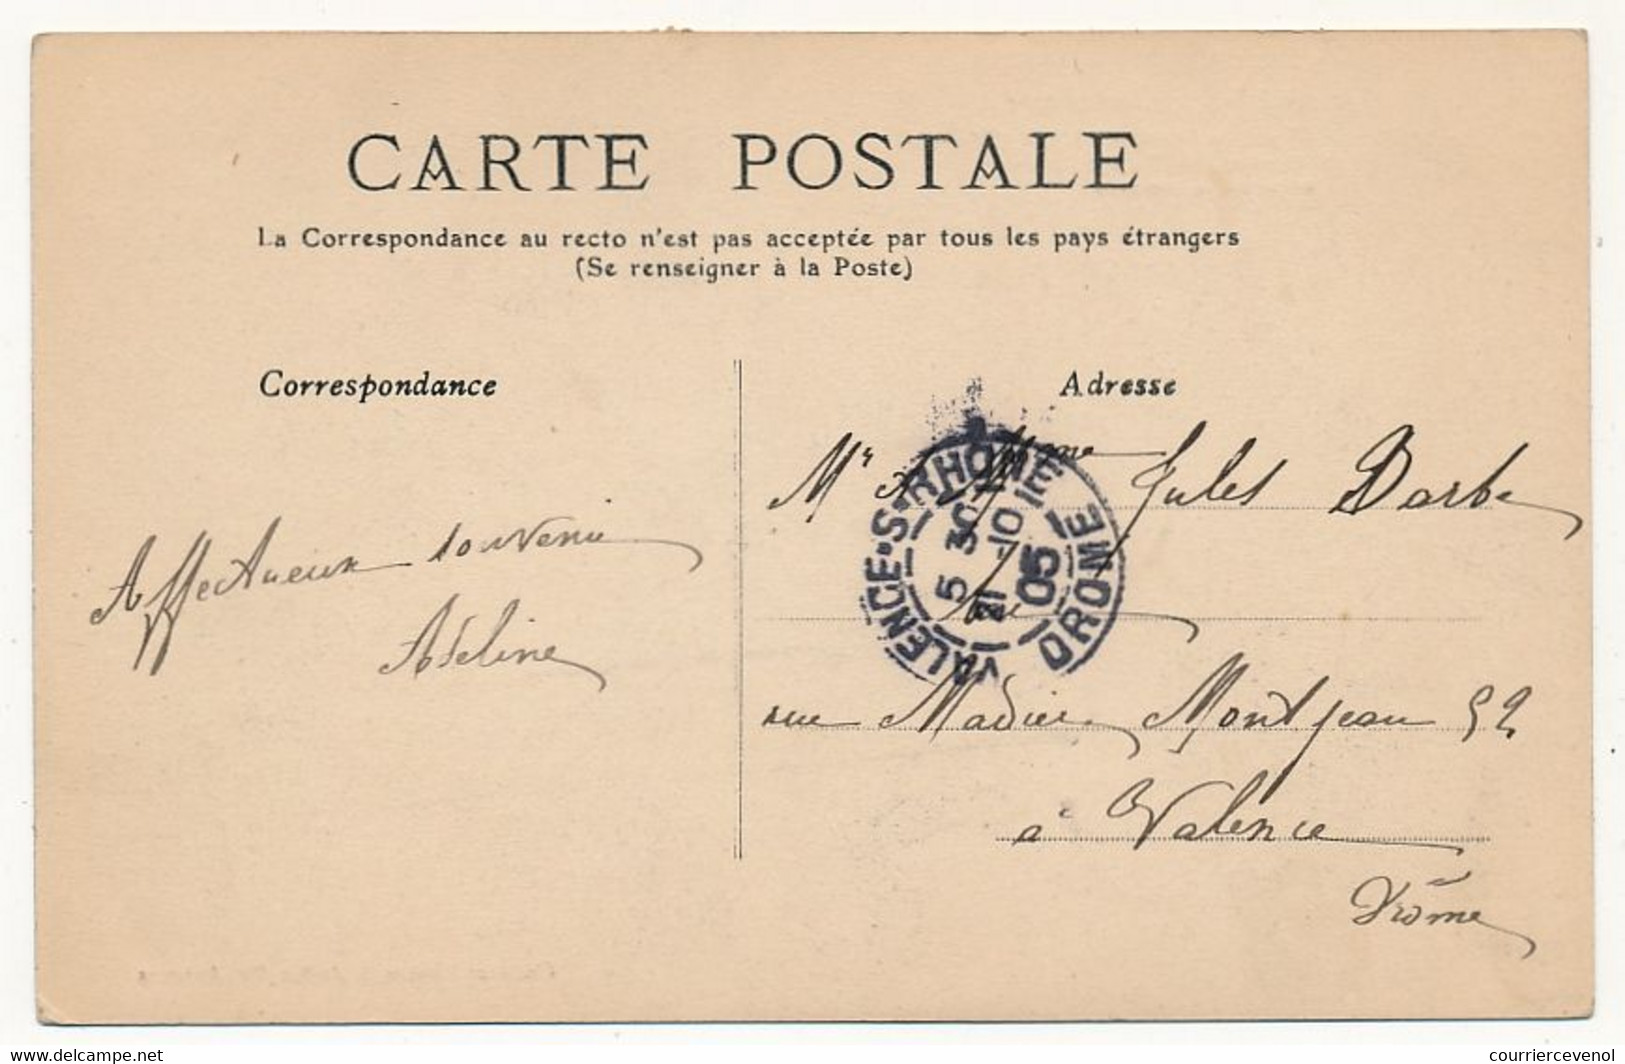 CARTE POSTALE
La Correspondance au recto n'est pas acceptée par tous les pays étrangers
(Se renseigner à la Poste)
Correspondance
Adresse
Mr & Mme Jules Barbe
Affectueux souvenir
Adeline
VALENCE-S-RHONE DROME
5 30
21 -10
05
rue Madier Montjean 52
à Valence
Drôme
www.delcampe.net
courriercevenol